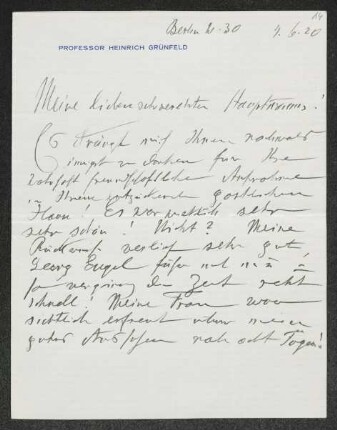 Berlin 21.30 9.6.20
PROFESSOR HEINRICH GRÜNFELD
Meine lieben schwerechten Hauptmanns!
Es drängt mich Ihnen nochmals
innigst zu danken für Ihre
wahrhaft freundschaftliche Aufnahme
in Ihrem entzückenden gastlichen
Haus! Es war wirklich sehr
sehr schön! Nicht? Meine
Rückreise verlief sehr gut,
Georg Engel fuhr mit
so verging die Zeit recht
schnell! Meine Frau war
sichtlich erfreut über mein
gutes Aussehen nach acht Tagen!